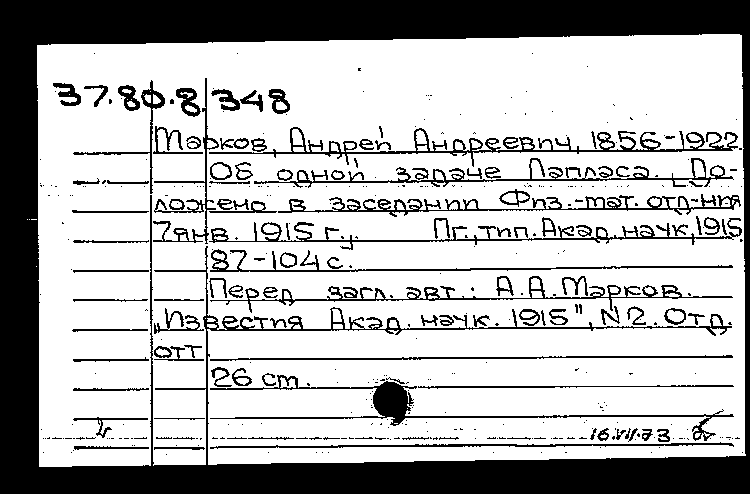 37.80.8.348
Марков, Андрей Андреевич, 1856-1922
Об одной задаче Лапласа. [До-
ложено в заседании Физ.-мат. отд-ния
7 янв. 1915 г.]. Пг., тип. Акад. наук, 1915
87-104 с.
Перед загл. авт.: А.А. Марков.
„Известия Акад. наук. 1915", N 2. Отд.
отт.
26 cm.
16.VII.73